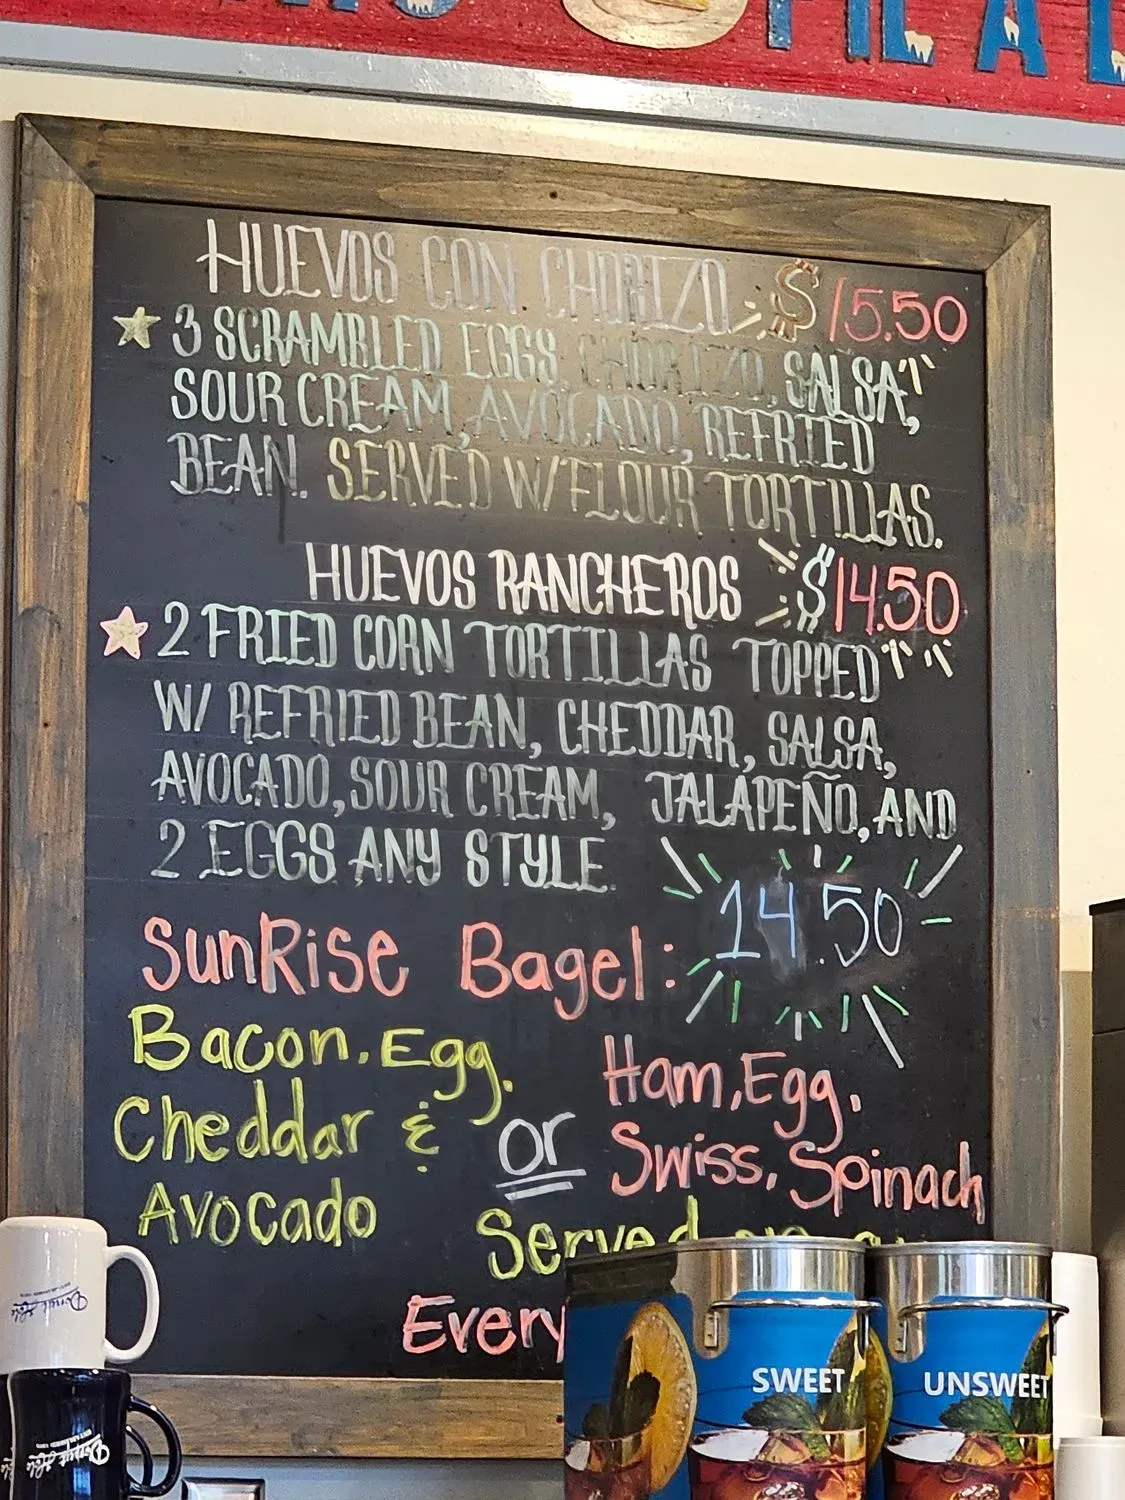 HUEVOS CON CHORIZO $15.50
3 SCRAMBLED EGGS, CHORIZO, SALSA,
SOUR CREAM, AVOCADO, REFRIED
BEAN. SERVED W/FLOUR TORTILLAS.
HUEVOS RANCHEROS $14.50
2 FRIED CORN TORTILLAS TOPPED
W/ REFRIED BEAN, CHEDDAR, SALSA,
AVOCADO, SOUR CREAM, JALAPEÑO, AND
2 EGGS ANY STYLE.
SunRise Bagel: 14.50
Bacon, Egg,
Cheddar &
Avocado
or
Ham, Egg,
Swiss, Spinach
Served on
Every
SWEET
UNSWEET